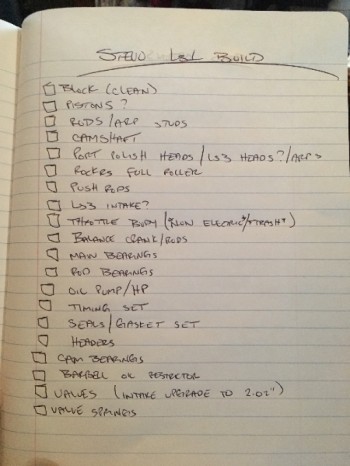 BUILD
BLOCK (CLEAN)
PISTONS?
RODS/ARP STUDS
CAMSHAFT
PORT POLISH HEADS/LS3 HEADS?/ARPs
ROCKERS FULL ROLLER
PUSH RODS
LS3 INTAKE?
THROTTLE BODY (*NON ELECTRIC*/*TRASH*)
BALANCE CRANK/RODS
MAIN BEARINGS
ROD BEARINGS
OIL PUMP/HP
TIMING SET
SEALS/GASKET SET
HEADERS
CAM BEARINGS
BARBELL OIL RESTRICTOR
VALVES (INTAKE UPGRADE TO 2.02")
VALVE SPRINGS